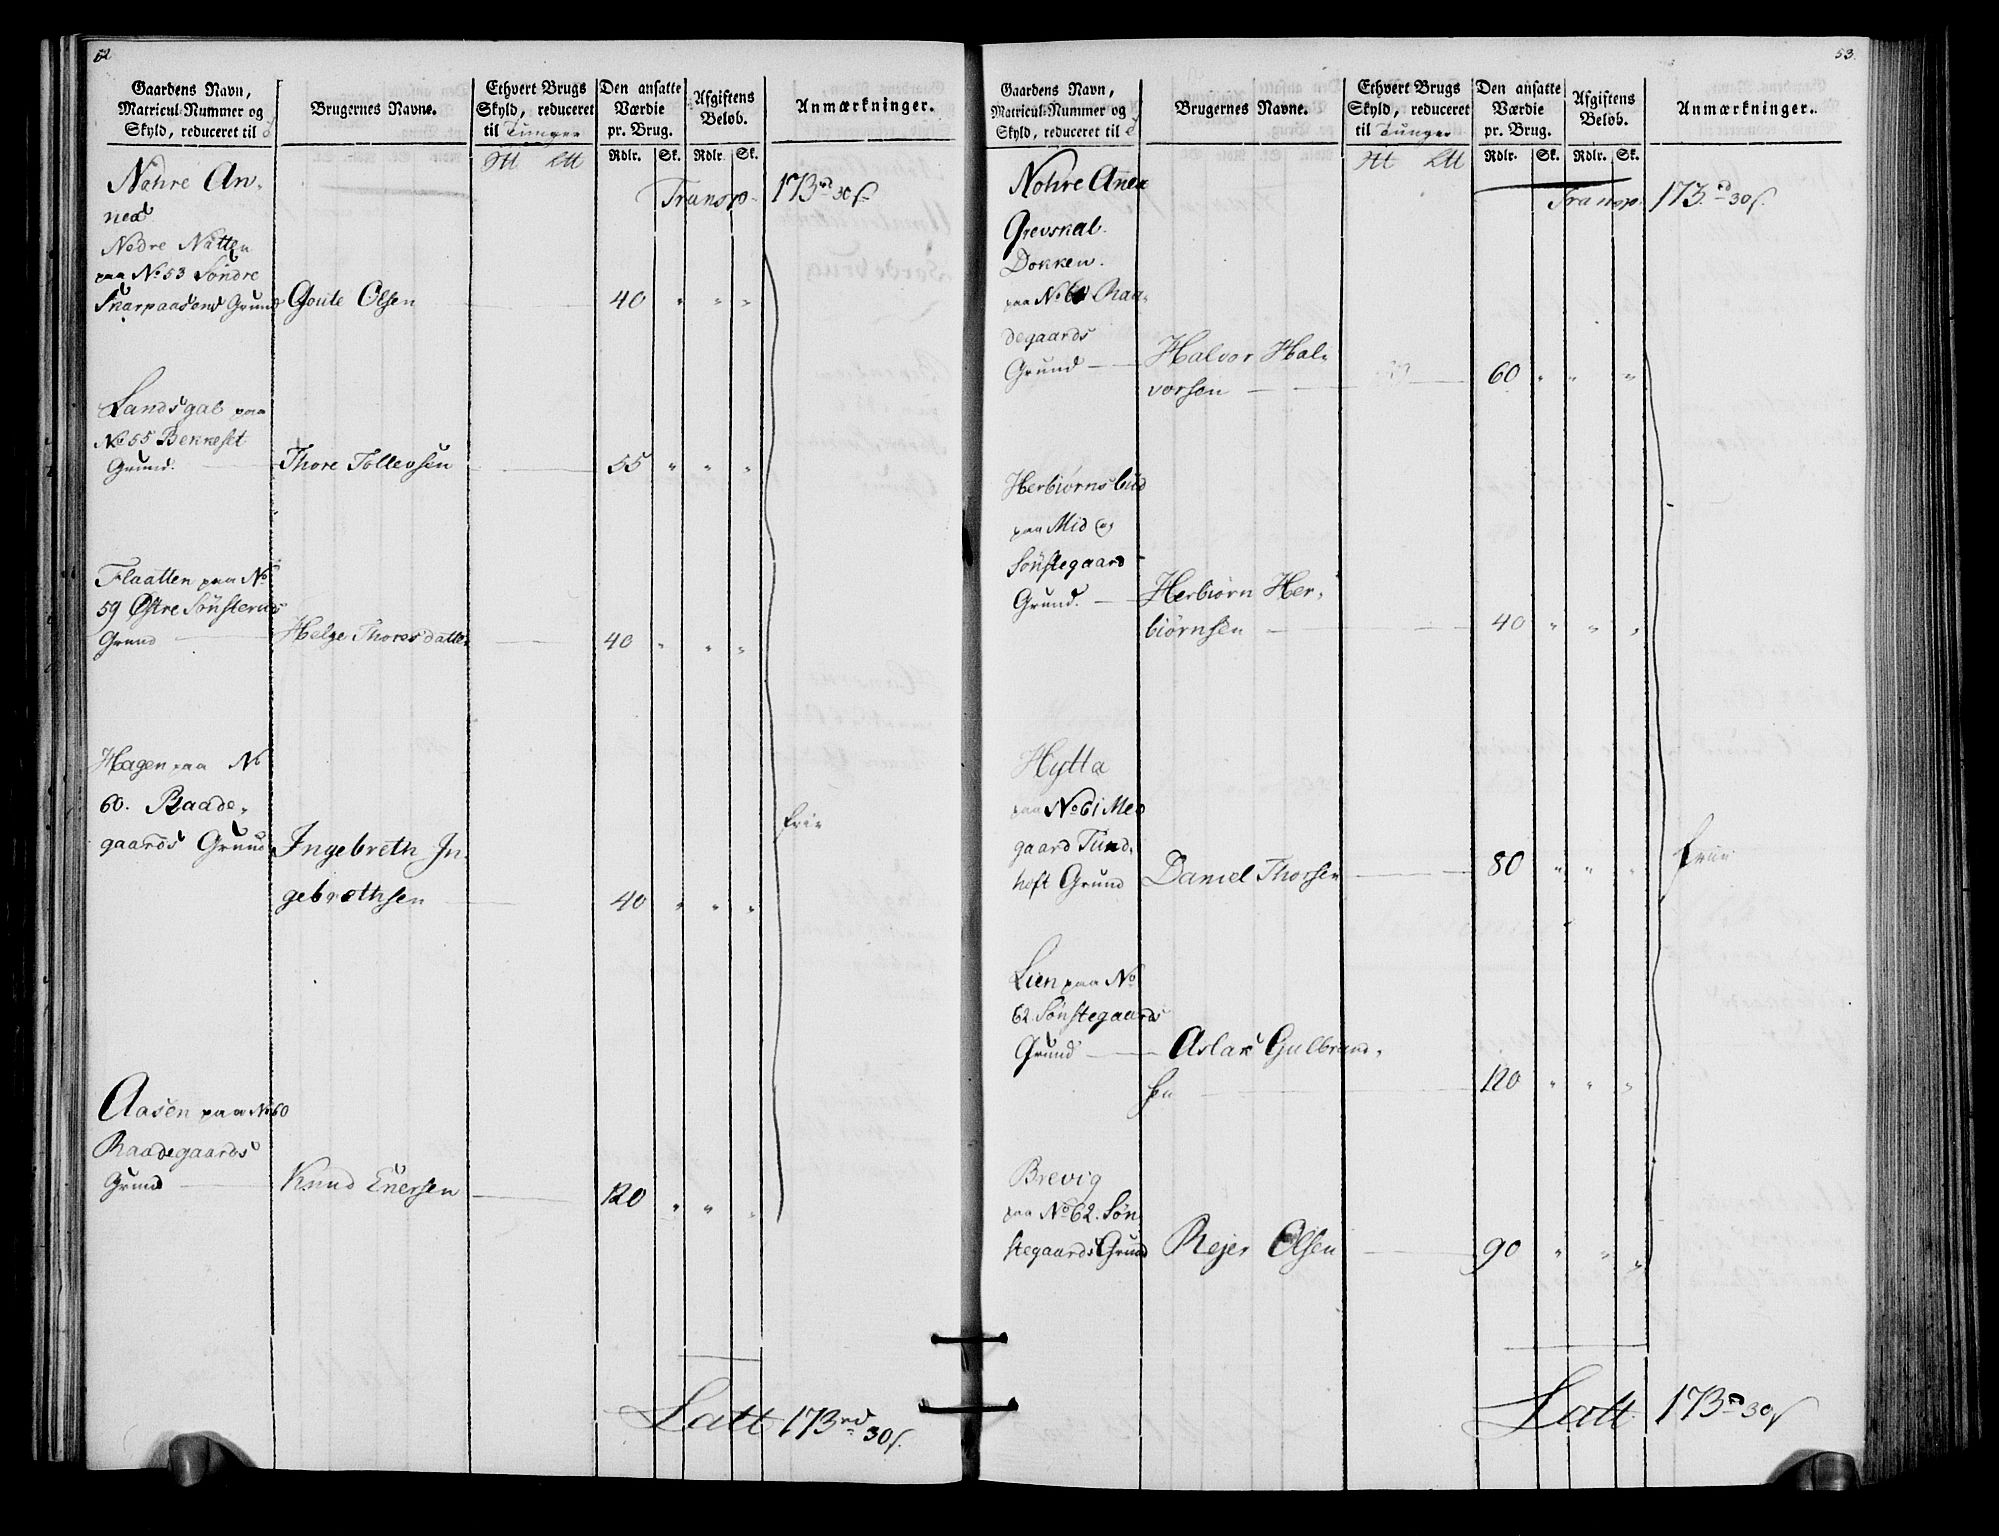 52
Gaardens Navn,
Matricul-Nummer og
Skyld, reduceret til
Brugernes Navne.
Ethvert Brugs
Skyld, reduceret
til Tunger
Den ansatte
Værdie
pr. Brug.
Afgiftens
Beløb.
Anmærkninger.
Rdlr. Sk. Rdlr. Sk.
Nohre An-
nex
Transp. 173 rd 30 s.
Nedre Natten
paa No 53 Søndre
Skarpaasens Grund Goute Olsen 40 " " "
Landsgal paa
No 55 Bekkeset
Grund. Thore Tollevsen 55 " " "
Flaatten paa No
59 Østre Sønsteruds
Grund Helge Thoresdatter 40 " " "
Hagen paa No
60. Raade-
gaards Grund Ingebreth In-
gebrethsen 40 " " "
frie
Aasen paa No 60
Raadegaards
Grund Knud Enersen 120 " " "
Latt 173 rd 30 s.
53.
Gaardens Navn,
Matricul-Nummer og
Skyld, reduceret til
Brugernes Navne.
Ethvert Brugs
Skyld, reduceret
til Tunger
Den ansatte
Værdie
pr. Brug.
Afgiftens
Beløb.
Anmærkninger.
Rdlr. Sk. Rdlr. Sk.
Nohre Annex
Transp. 173 rd 30 s.
Grevskal.
Dokken.
paa No 60 Raa-
degaards
Grund Halvor Hal-
vorsen 60 " " "
Herbiørnsbud
paa Mid og
Sønstegaard
Grund. Herbiørn Her-
biørnsen 40 " " "
Hytta
paa No 61 Med
gaard Tund-
hoft Grund Daniel Thorsen 80 " " "
frie
Lien paa No
62 Sønstegaards
Grund Aslak Gulbrand-
sen 120 " " "
Brevig
paa No 62. Søn-
stegaards Grund Rejer Olsen 90 " " "
Latt 173 rd 30 s